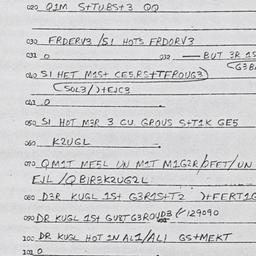 020 Q1M S+TUBST3 QQ
030 FRDERV3 /SI HOT3 FRDORV3
031 0 032 — BUT 3R 1S
040 SI HET M1S+ CES,RS+TFROUG3 (G3B
(SOL3/)+EJC3
041 0
050 SI HOT M3R 3 CU. GROUS S+T1K GES
060 K2UGL
070 QM1T MFSL UN M1T M1G2R/OFFT/UN
EJL /QBIR3K2UG2L
080 D3R KUGL 1S+ G3R1S+T2 )+FERT1G
090 DR KUGL 1S+ GUBTG3ROUD3 (/129090
100 DR KUGL HOT 1N AL1/AL1 GS+MEKT
101 0